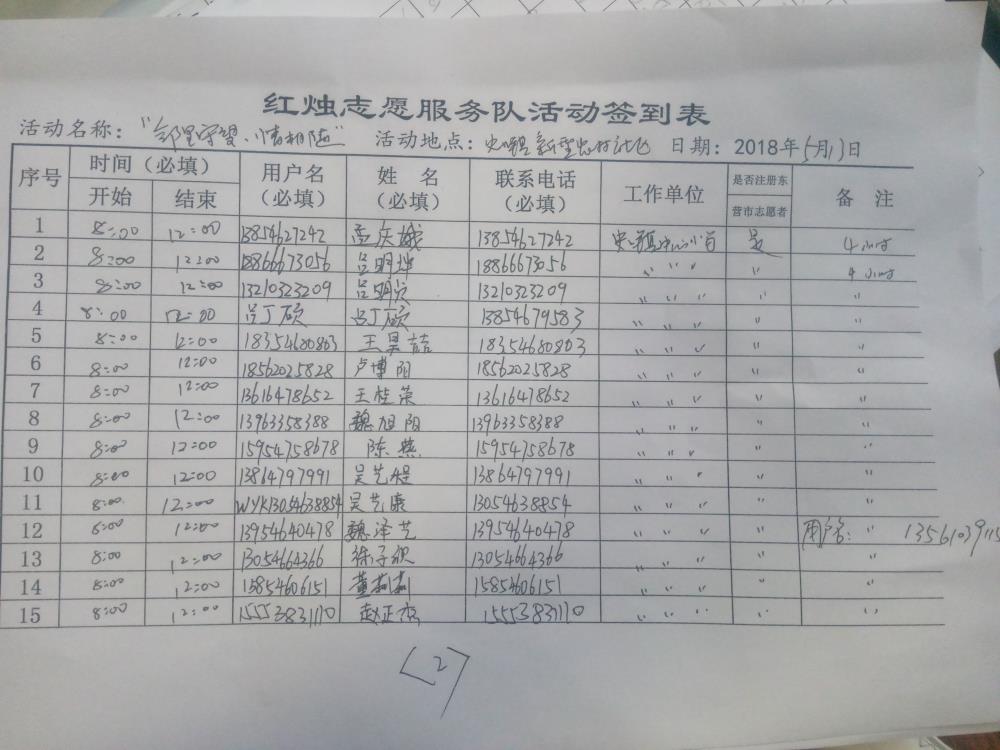 红烛志愿服务队活动签到表
活动名称："邻里守望、情相随" 活动地点：史口镇新型农村社区 日期：2018年5月13日
序号 时间（必填） 用户名（必填） 姓 名（必填） 联系电话（必填） 工作单位 是否注册东营市志愿者 备 注
开始 结束
1 8:00 12:00 13854627242 孟庆娥 13854627242 史口镇中心小学 是 4小时
2 8:00 12:00 18866673056 吕明坤 18866673056 〃 〃 〃 〃 4小时
3 8:00 12:00 13210323209 吕明 13210323209 〃 〃 〃 〃 〃
4 8:00 12:00 吕丁硕 吕丁硕 13854679583 〃 〃 〃 〃 〃
5 8:00 12:00 18354680803 王昊喆 18354680803 〃 〃 〃 〃 〃
6 8:00 12:00 18562025828 卢博阳 18562025828 〃 〃 〃 〃 〃
7 8:00 12:00 13616478652 王桂荣 13616478652 〃 〃 〃 〃 〃
8 8:00 12:00 13963358388 魏旭阳 13963358388 〃 〃 〃 〃 〃
9 8:00 12:00 15954758678 陈燕 15954758678 〃 〃 〃 〃 〃
10 8:00 12:00 13864797991 吴艺程 13864797991 〃 〃 〃 〃 〃
11 8:00 12:00 WYK13054638854 吴艺康 13054638854 〃 〃 〃 〃 〃
12 8:00 12:00 13954640478 魏泽艺 13954640478 〃 〃 〃 〃 用户名：〃 13561039115
13 8:00 12:00 13054664366 徐子欣 13054664366 〃 〃 〃 〃 〃
14 8:00 12:00 15854606151 董莉莉 15854606151 〃 〃 〃 〃 〃
15 8:00 12:00 15553831110 赵正杰 15553831110 〃 〃 〃 〃 〃
[2]